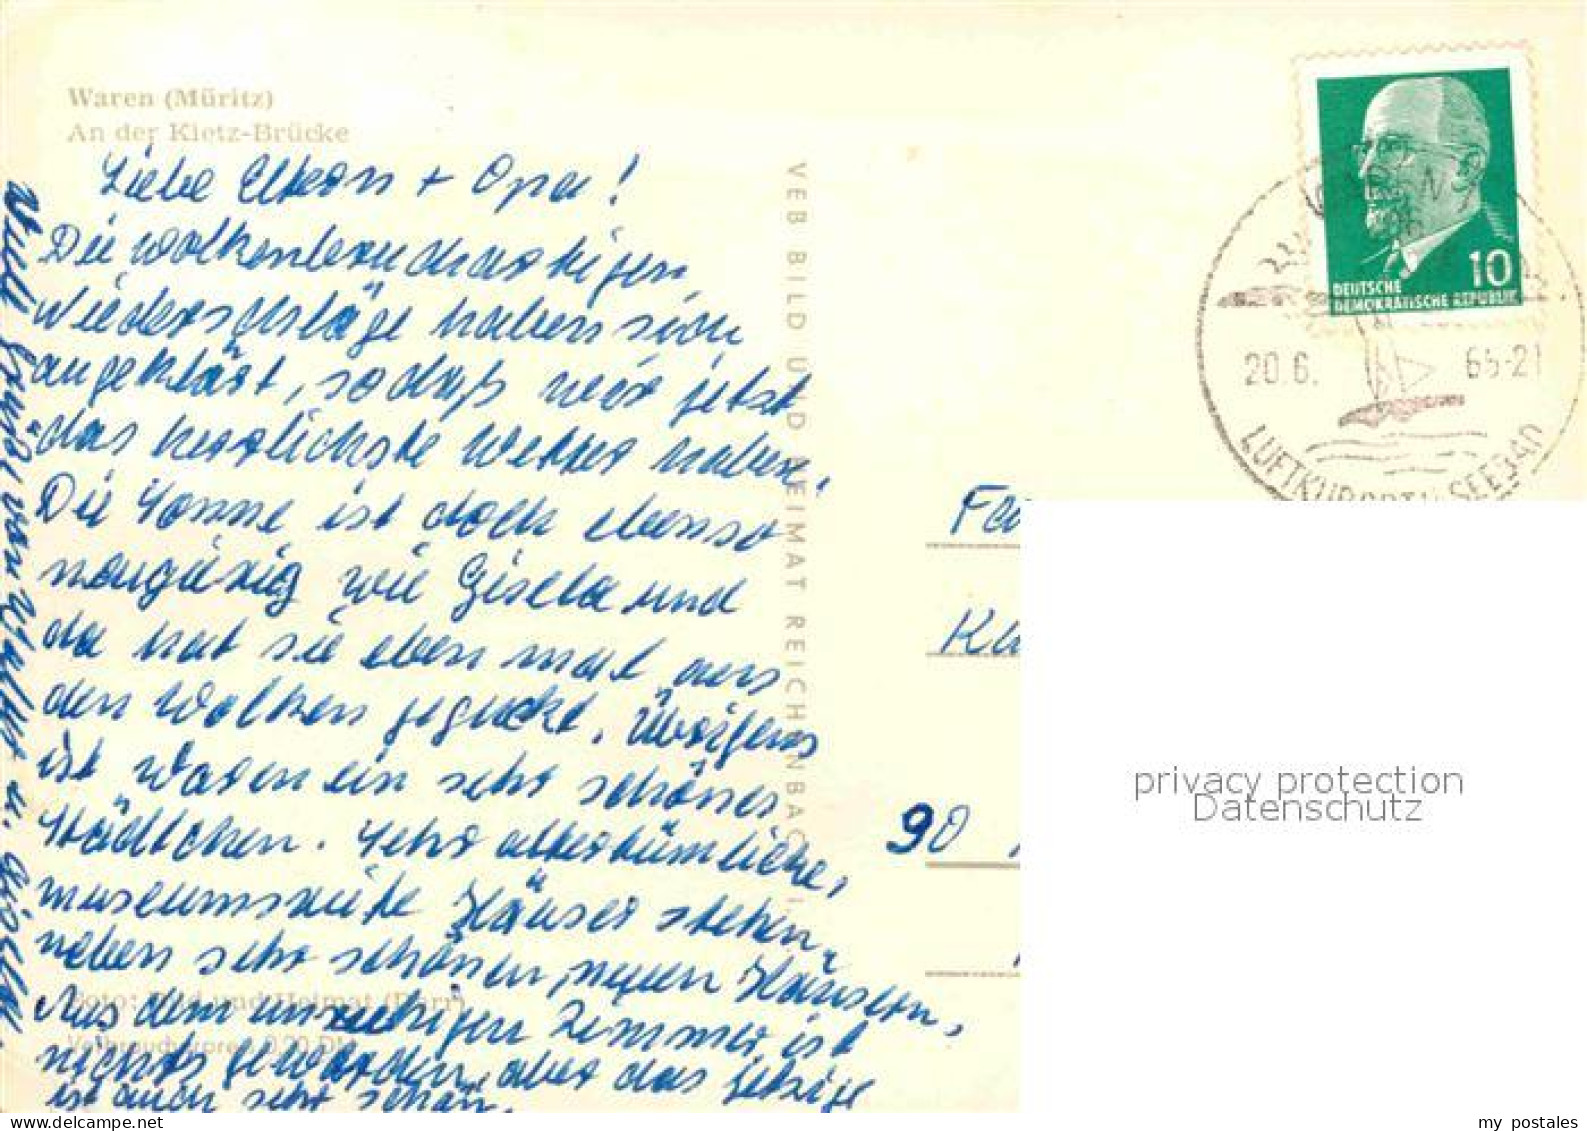 Waren (Müritz)
An der Kietz-Brücke
Liebe Eltern + Opa!
Die wolkenbruchartigen
Niederschläge haben sich
aufgeklärt, sodaß wir jetzt
das herrlichste Wetter haben.
Die Sonne ist doch ebenso
neugierig wie Gisela und
da hat sie eben mal aus
den Wolken geguckt. Übrigens
ist Waren ein sehr schönes
Städtchen. Sehr altertümliche,
museumsreife Häuser stehen
neben sehr schönen, neuen Häusern.
Aus dem unruhigen Zimmer ist
nichts geworden, aber das jetzige
ist auch sehr schön.
Viele Grüße von u. Gisela
Foto: Bild und Heimat (Darr)
Verbraucherpreis 0,20 DM
VEB BILD UND HEIMAT REICHENBACH I.
DEUTSCHE
DEMOKRATISCHE REPUBLIK
10
20.6. 65-21
LUFTKURORT U. SEEBAD
Fa
90
privacy protection
Datenschutz
my postales